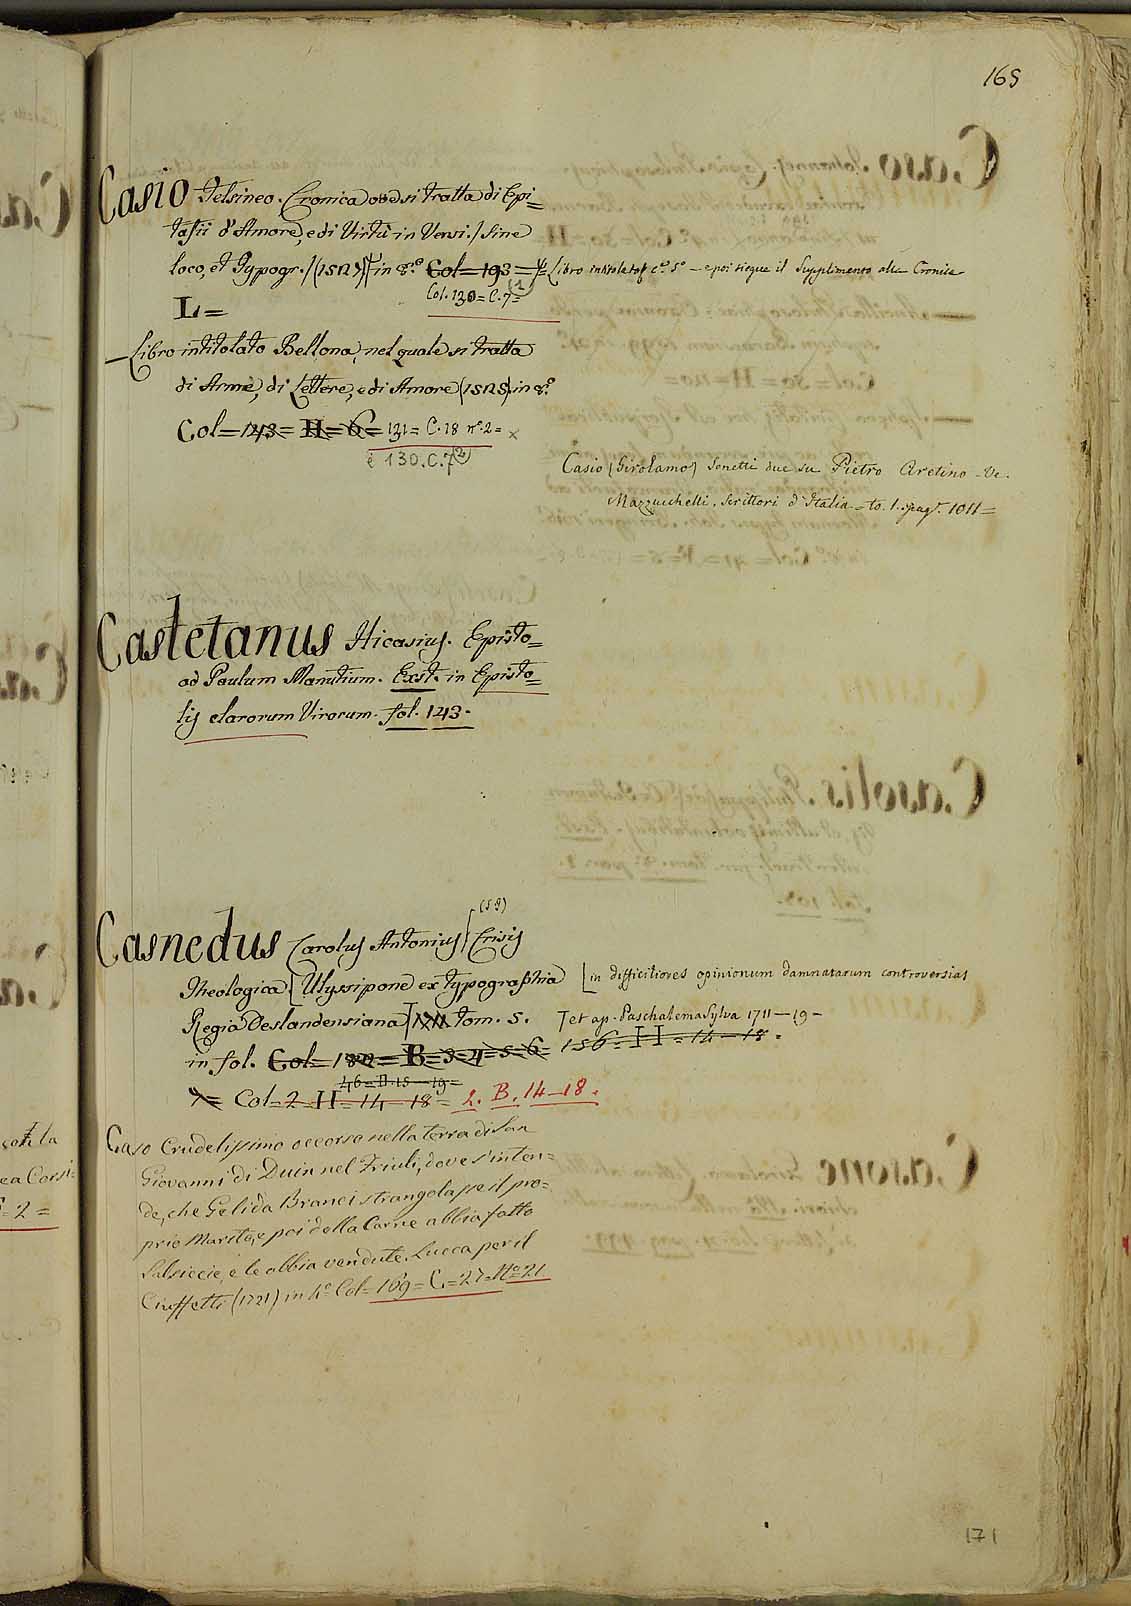 165
Casio Felsineo. Cronica ove si tratta di Epi=
tafii d'Amore, e di Virtù in Versi. / Sine
loco, et Typogr. / (1527) in 8.° Col = 193 = Libro intitolato c.° 5.° - e poi siegue il Supplimento alla Cronica
Col. 130 = C. 7 = (1)
L =
— Libro intitolato Bellona, nel quale si tratta
di Arme, di Lettere, e di Amore (1525) in 8.°
Col = 143 = H = 6 = 131 = C. 18 n.° 2 = x
è 130. C. 7 (2)
Casio (Girolamo) Sonetti due su Pietro Aretino Ve.
Mazzucchelli, Scrittori d'Italia = to. 1. pag. 1011 =
Castetanus Hicasius. Episto=
ad Paulum Manutium. Exst. in Episto=
lis clarorum Virorum. fol. 143.
(59)
Casnedus Carolus Antonius Crisis
Theologica [ Ulyssipone ex typographia [ in difficiliores opinionum damnatarum controversias
Regia Deslandensiana ] 1711 tom. 5. ] et ap. Paschalem a Sylva 1711 — 19 —
in fol. Col = 182 = B = 3 = 4 = 5 = 6 = 156 = H = 14 — 18 =
46 = D. 15 — 19 =
7 = Col = 2 = H = 14 — 18 = 2. B. 14 — 18.
Caso Crudelissimo occorso nella terra di San
Giovanni di Duin nel Friuli, dove s'inten=
de, che Gelida Branci strangolasse il pro=
prio Marito, e poi della Carne abbia fatto
Salsiccie, e le abbia vendute. Lucca per il
Ciuffetti (1721) in 4.° Col = 169 = C = 27 = N.° 21
171